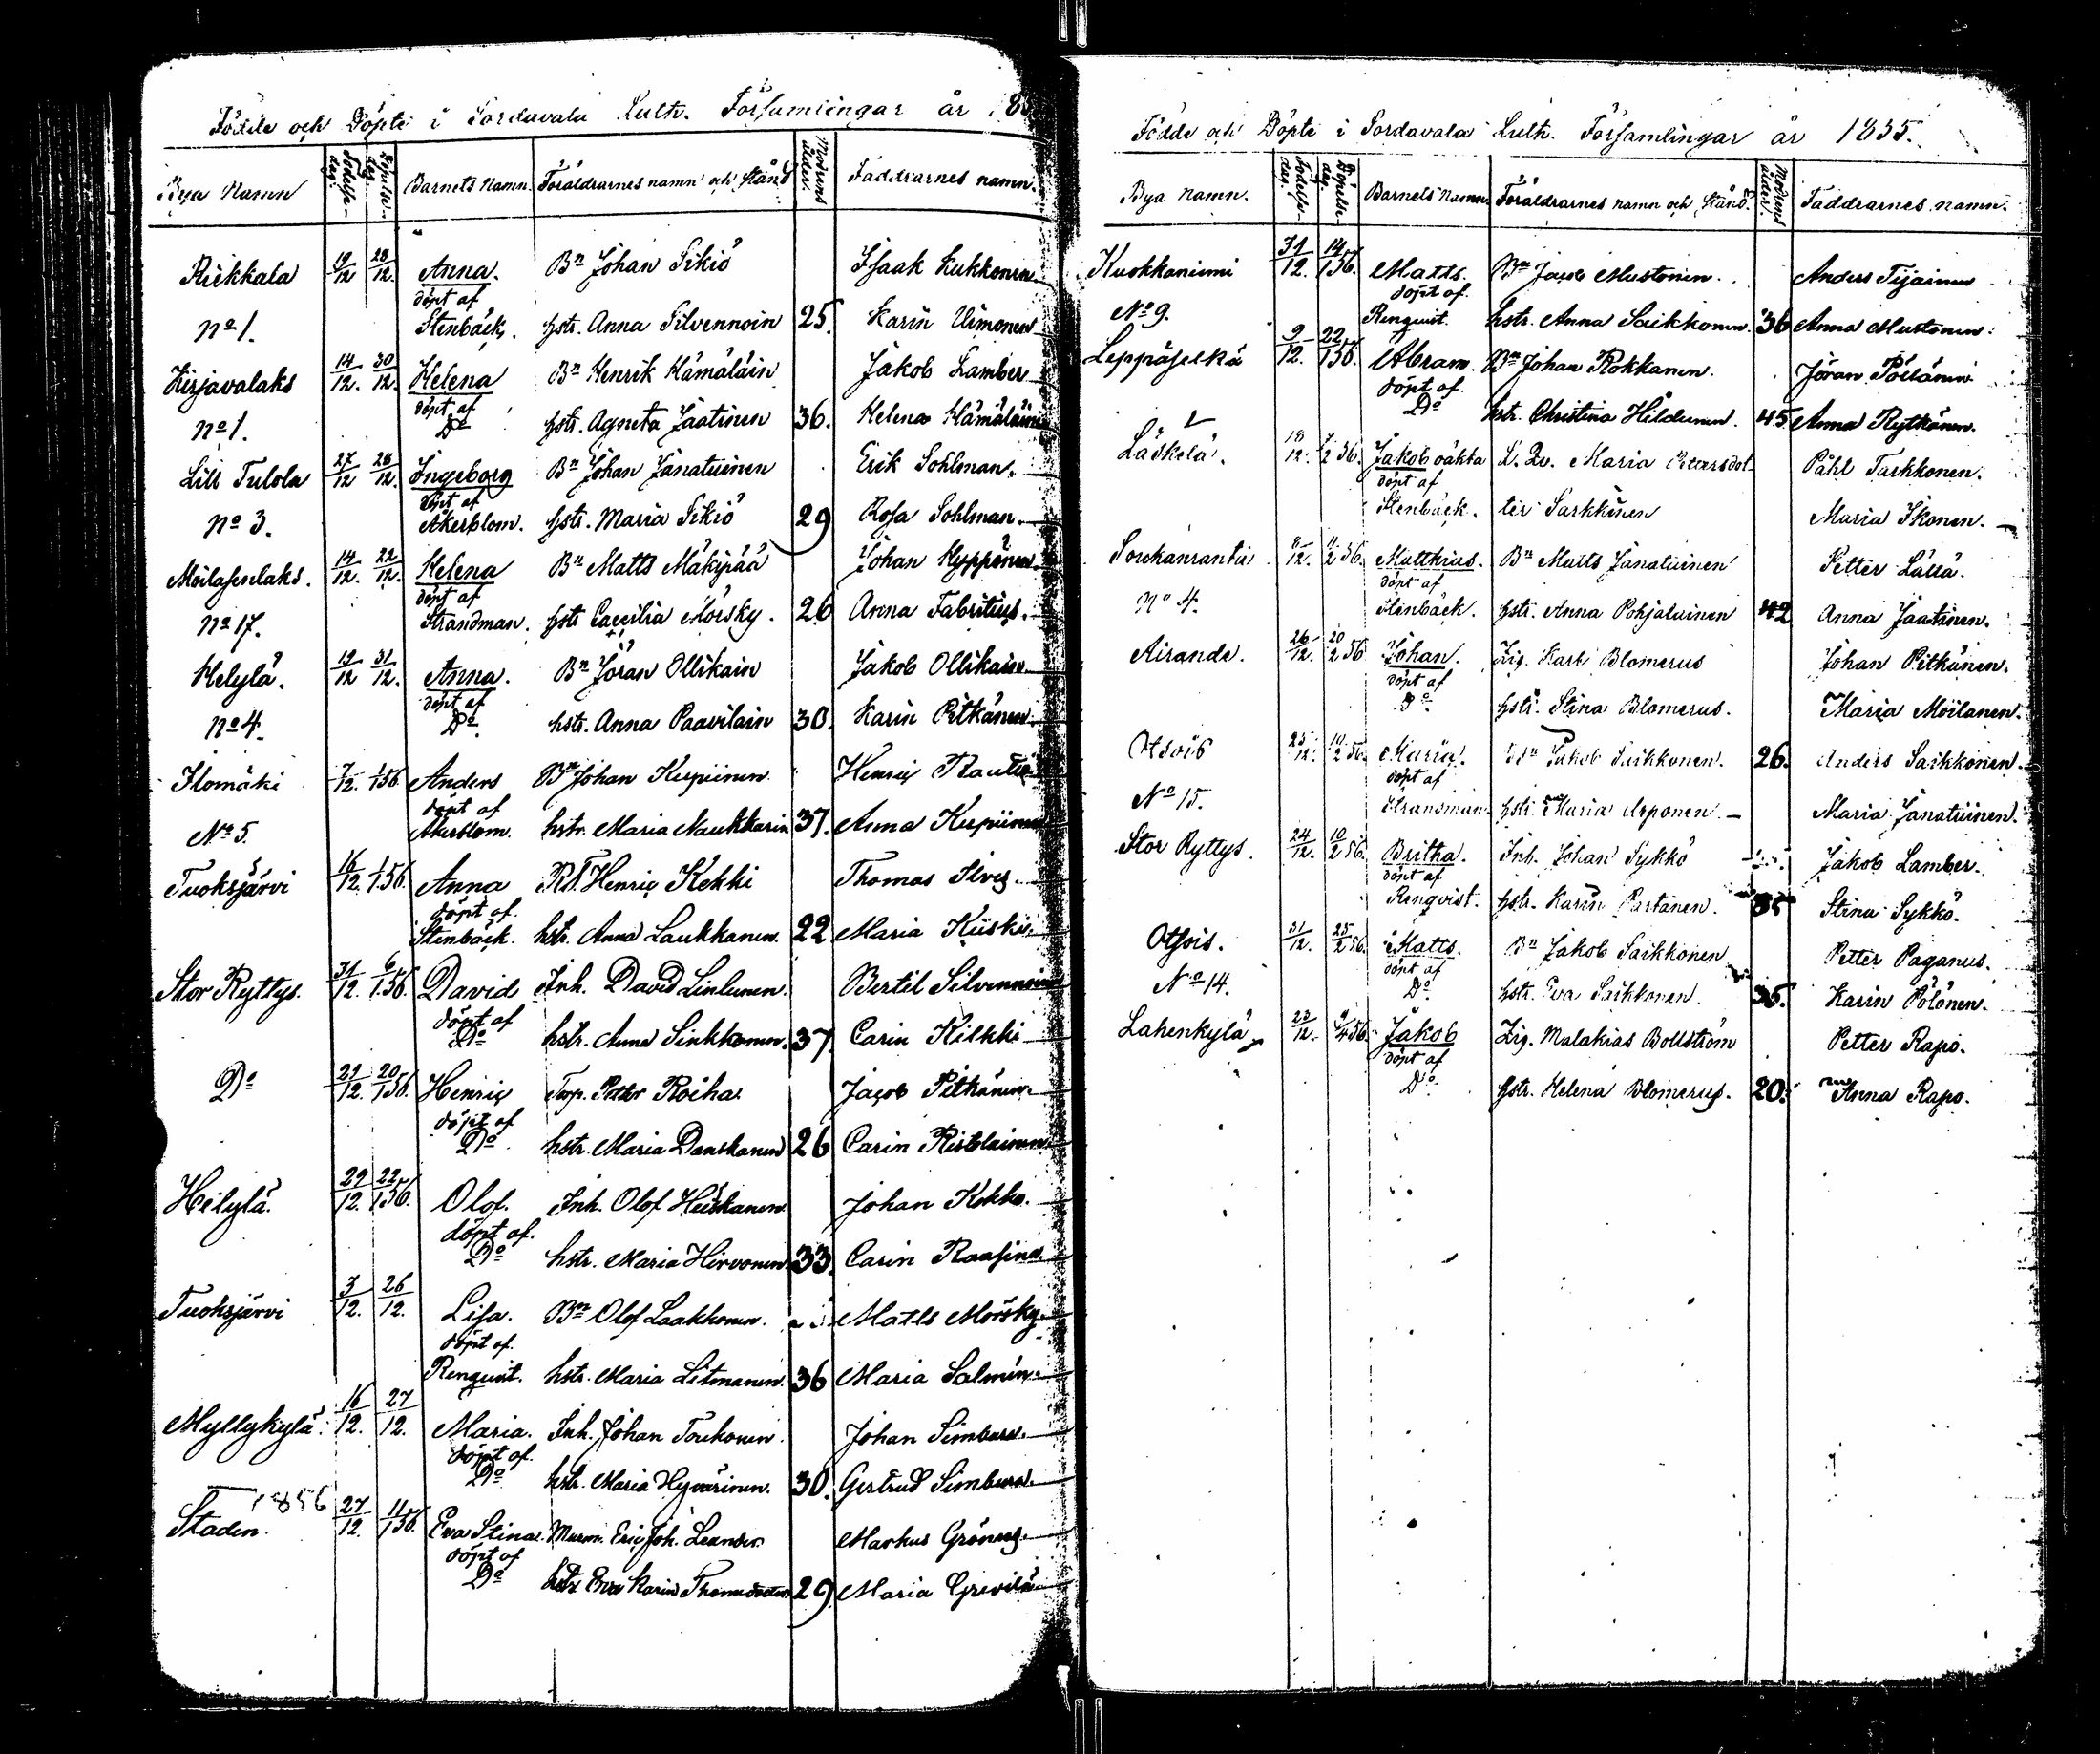 Födde och Döpte i Sordavala Luth. Församlingar år 18
Bya Namn Födelse-dag. Döpelse-dag. Barnets Namn. Föräldrarnes namn och Stånd Modrens ålder. Faddrarnes namn.
Riekkala 19/12 28/12. Anna. Bn Johan Sikiö Isaak Kukkonen
döpt af
No 1. Stenbäck. hstr. Anna Silvennoin 25. Karin Uimonen
Kirjavalaks 14/12. 30/12. Helena Bn Henrik Hämäläin Jakob Lamber
döpt af
No 1. Do hstr. Agneta Jaatinen 36. Helena Hämäläinen
Lill Tulola 27/12 28/12. Ingeborg Bn Johan Jänatuinen Erik Sohlman.
döpt af
No 3. Åkerblom. hstr. Maria Sikiö 29 Rosa Sohlman.
Moilasenlaks. 14/12. 22/12. Helena Bn Matts Mäkipää Johan Hyppönen
döpt af
No 17. Strandman. hstr Caecilia Mörsky. 26 Anna Fabritius.
Helylä. 19/12 31/12. Anna. Bn Jöran Ollikain Jakob Ollikain
döpt af
No 4. Do. hstr. Anna Paavilain 30. Karin Pitkänen
Ilomäki 7/12. 1/1 56. Anders Bn Johan Kupiinen Henric Rautio
döpt af
No 5. Åkerblom. hstr. Maria Naukkarin 37. Anna Kupiinen
Tuoksjärvi 16/12. 1/1 56. Anna Henric Kekki Thomas Ilves.
döpt af.
Stenbäck. hstr. Anna Laukkanen. 22 Maria Kiiskin
Stor Ryttys. 31/12. 6/1 56. David Inh. David Linlunen. Bertil Silvennoinen
döpt af
Do hstr. Anna Sinkkonen. 37. Carin Kilkki
Do 29/12. 20/1 56. Henric Torp. Petter Roiha Jacob Pitkänen
döpt af
Do hstr. Maria Danskanen 26 Carin Ristolainen
Helylä. 29/12. 22/1 56. Olof. Inh. Olof Heiskanen. Johan Kokko.
döpt af.
Do hstr. Maria Hirvonen. 33. Carin Raasina.
Tuoksjärvi 3/12. 26/12. Lisa. Bn Olof Laakkonen. Matts Mörsky
döpt af.
Renquist. hstr. Maria Litmanen. 36 Maria Salmén.
Myllykylä. 16/12. 27/12. Maria. Inh. Johan Toukonen. Johan Simbura.
döpt af.
Do hstr. Maria Hyvärinen. 30. Gertrud Simbura.
1856
Staden. 27/12. 11/1 56. Eva Stina. Murm. Eric Joh. Leander. Markus Gröneg.
döpt af
Do hstr Eva Karin Thomedotter 29. Maria Grevilä
Födde och Döpte i Sordavala Luth. Församlingar år 1855.
Bya namn. Födelse-dag. Döpelse-dag. Barnets Namn. Föräldrarnes namn och Stånd. Modrens ålder. Faddrarnes namn.
Kuokkaniemi 31/12. 14/1 56. Matts. Bn Jacob Mustonen. Anders Tijainen
döpt af.
No 9. Renquist. hstr. Anna Saikkonen. 36 Anna Mustonen.
Leppäselkä 9/12. 22/1 56. Abram. Bn Johan Kokkanen. Jöran Pöllänen
döpt af.
Do hstr. Christina Hildunen. 45 Anna Rytkönen.
Läskelä. 18/12. 7/2 56. Jakob oäkta L. Qv. Maria Petersdot- Påhl Tarkkonen.
döpt af
Stenbäck. ter Sarkkinen Maria Ikonen.
Sorckanranta 8/12. 11/2 56. Matthius. Bn Matts Jänatuinen Petter Lätiä.
döpt af
No 4. Stenbäck. hstr. Anna Pohjalainen 42 Anna Jaatinen.
Airanda. 26/12. 20/2 56. Johan. Zig. Karl Blomerus Johan Pitkänen.
döpt af
Do. hstr. Stina Blomerus. Maria Moilanen.
Otsois 25/12. 10/2 56. Maria. Bn Jakob Saikkonen. 26. Anders Saikkonen.
döpt af
No 15. Strandman. hstr. Maria Arponen. Maria Jänatuinen.
Stor Ryttys. 24/12. 10/2 56. Britha. Inh. Johan Sykkö Jakob Lamber.
döpt af
Renqvist. hstr. Karin Partanen. 35 Stina Sykkö.
Otsois. 31/12. 25/2 56. Matts. Bn Jakob Saikkonen Petter Paganus.
döpt af
No 14. Do. hstr. Eva Saikkonen. 35. Karin Pölönen.
Lahenkylä 23/12. 9/4 56. Jakob Zig. Malakias Bollström Petter Rapo.
döpt af
Do. hstr. Helena Blomerus. 20. Anna Rapo.